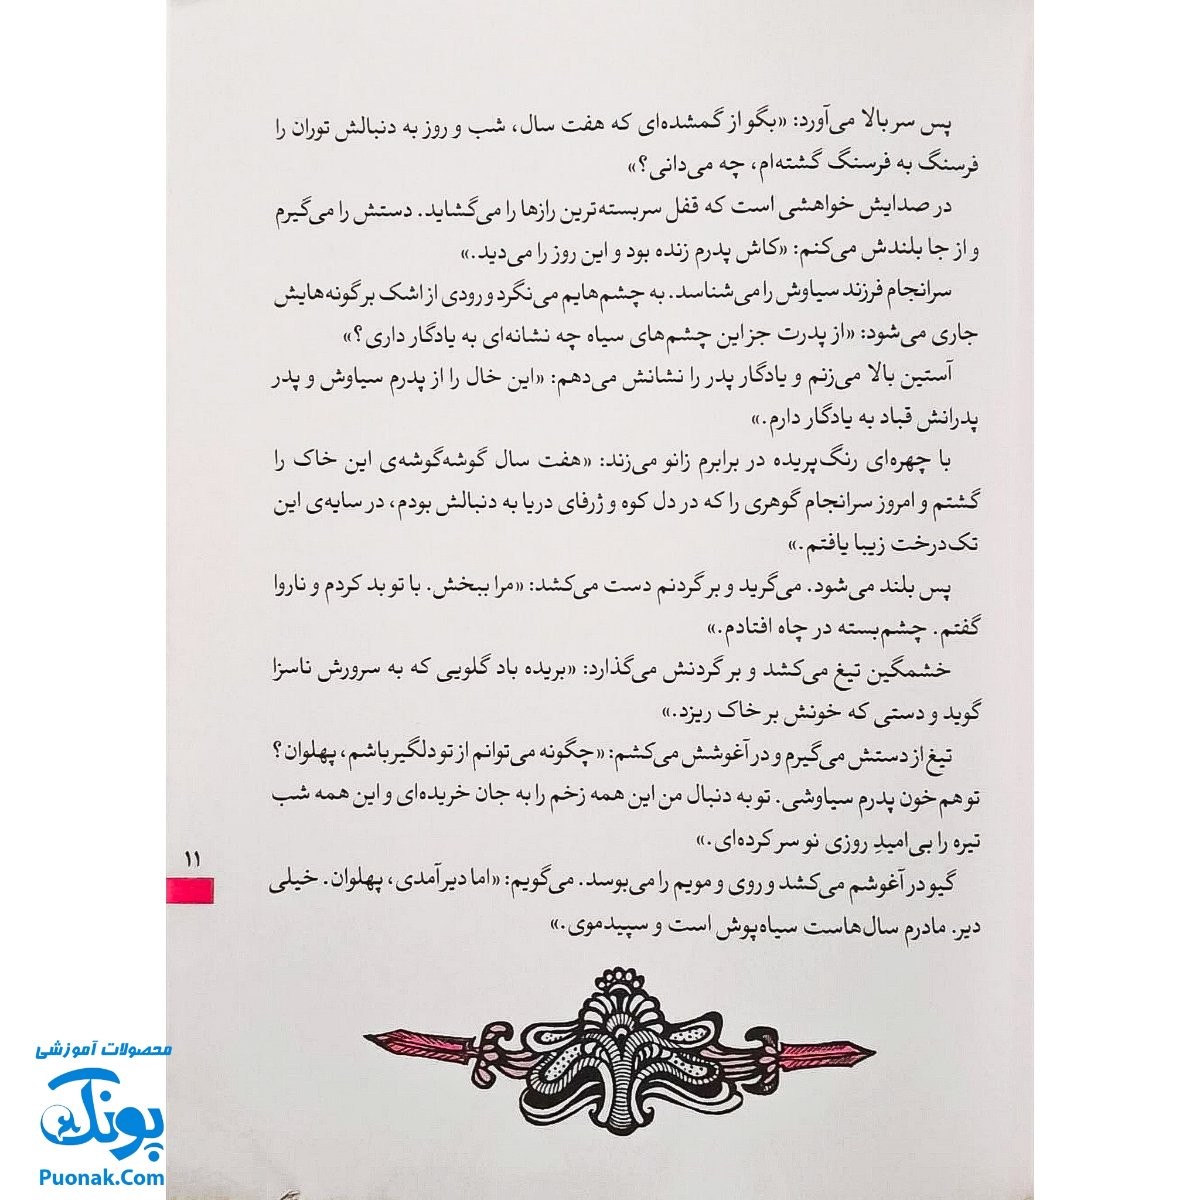 پس سر بالا می‌آورد: «بگو از گمشده‌ای که هفت سال، شب و روز به دنبالش توران را
فرسنگ به فرسنگ گشته‌ام، چه می‌دانی؟»
در صدایش خواهشی است که قفل سربسته‌ترین رازها را می‌گشاید. دستش را می‌گیرم
و از جا بلندش می‌کنم: «کاش پدرم زنده بود و این روز را می‌دید.»
سرانجام فرزند سیاوش را می‌شناسد. به چشم‌هایم می‌نگرد و رودی از اشک بر گونه‌هایش
جاری می‌شود: «از پدرت جز این چشم‌های سیاه چه نشانه‌ای به یادگار داری؟»
آستین بالا می‌زنم و یادگار پدر را نشانش می‌دهم: «این خال را از پدرم سیاوش و پدر
پدرانش قباد به یادگار دارم.»
با چهره‌ای رنگ‌پریده در برابرم زانو می‌زند: «هفت سال گوشه‌گوشه‌ی این خاک را
گشتم و امروز سرانجام گوهری را که در دل کوه و ژرفای دریا به دنبالش بودم، در سایه‌ی این
تک‌درخت زیبا یافتم.»
پس بلند می‌شود. می‌گرید و بر گردنم دست می‌کشد: «مرا ببخش. با تو بد کردم و ناروا
گفتم. چشم‌بسته در چاه افتادم.»
خشمگین تیغ می‌کشد و بر گردنش می‌گذارد: «بریده باد گلویی که به سرورش ناسزا
گوید و دستی که خونش بر خاک ریزد.»
تیغ از دستش می‌گیرم و در آغوشش می‌کشم: «چگونه می‌توانم از تو دلگیر باشم، پهلوان؟
تو هم خون پدرم سیاوشی. تو به دنبال من این همه زخم را به جان خریده‌ای و این همه شب
تیره را بی‌امیدِ روزی نو سر کرده‌ای.»
گیو در آغوشم می‌کشد و روی و مویم را می‌بوسد. می‌گویم: «اما دیر آمدی، پهلوان. خیلی
دیر. مادرم سال‌هاست سیاه‌پوش است و سپیدموی.»
۱۱
محصولات آموزشی
پونک
Puonak.Com